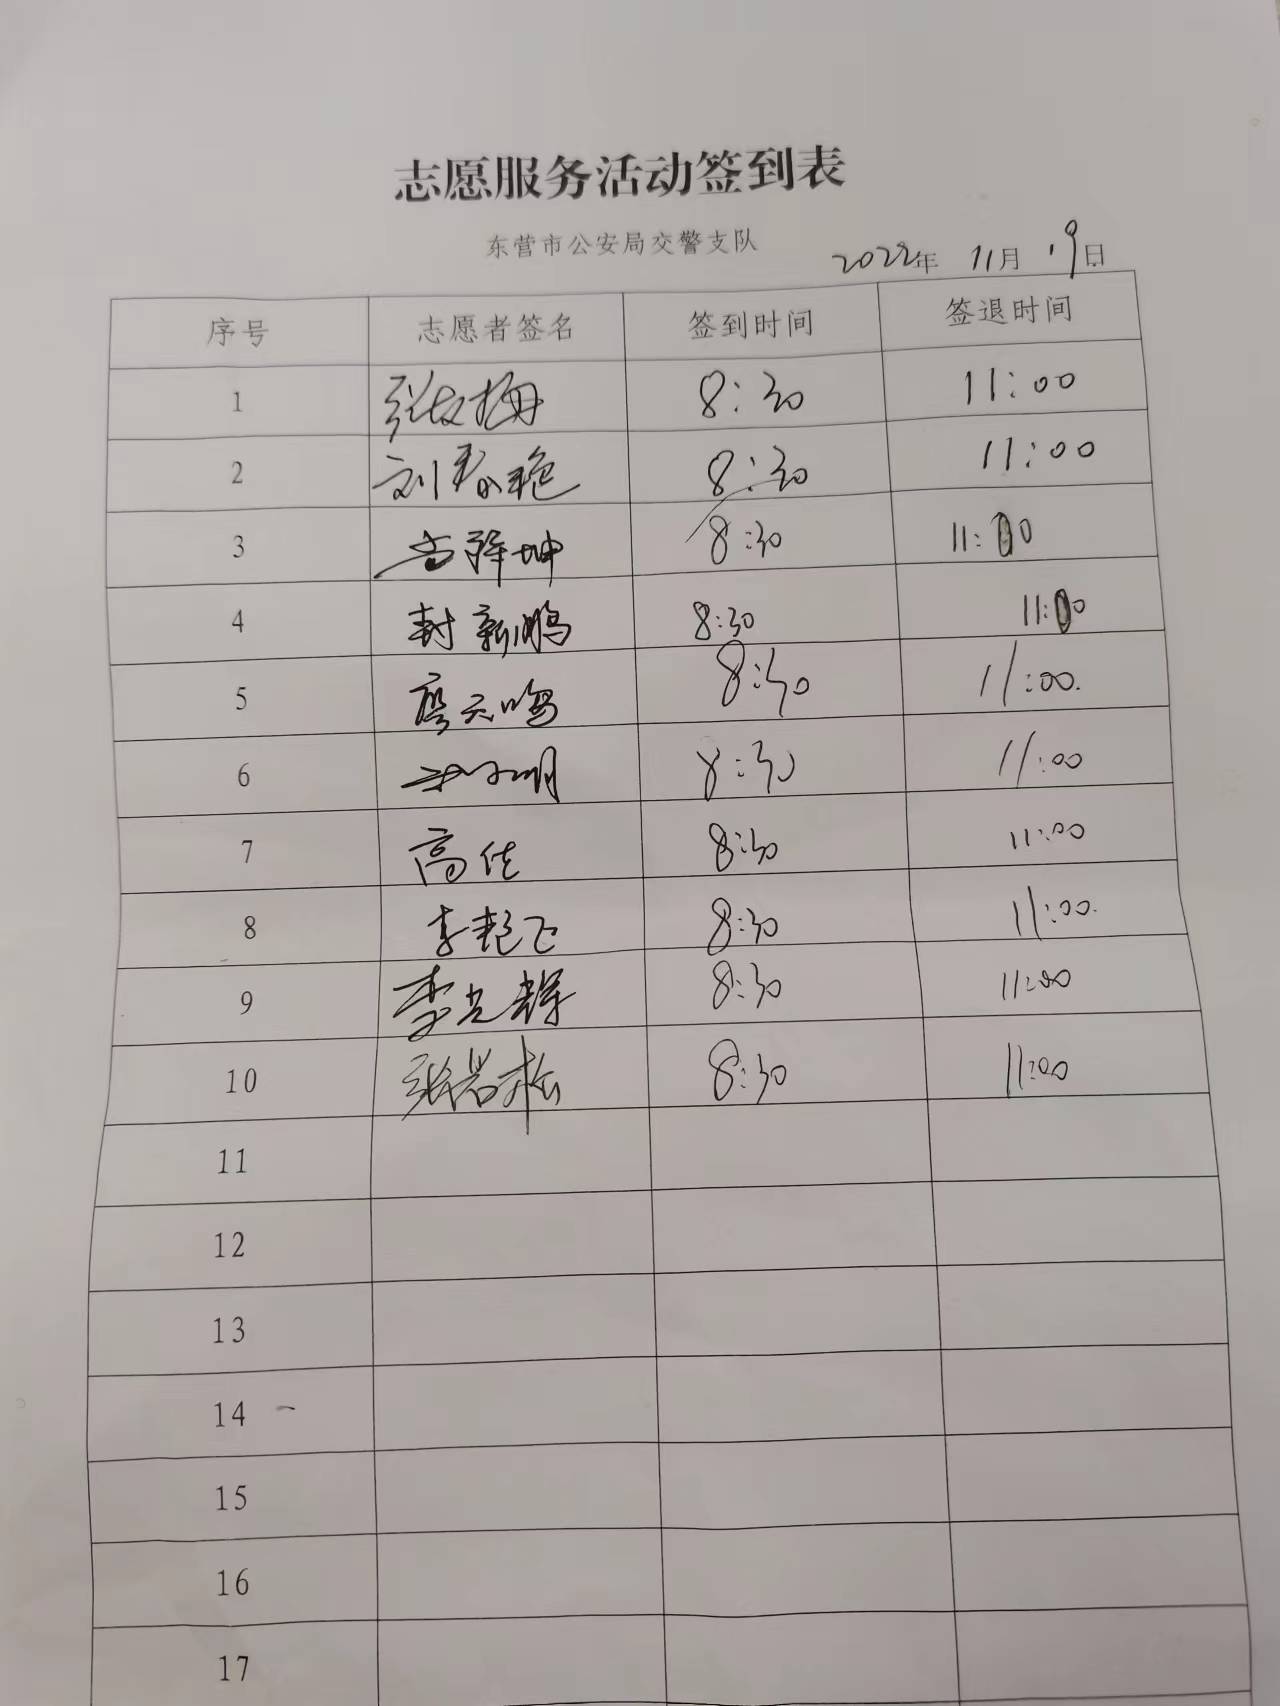 志愿服务活动签到表
东营市公安局交警支队
2022年 11月 19日
序号 志愿者签名 签到时间 签退时间
1 8:30 11:00
2 刘春艳 8:30 11:00
3 8:30 11:00
4 封新鹏 8:30 11:00
5 廖天鸣 8:30 11:00.
6 8:30 11:00
7 高佳 8:30 11:00
8 李艳飞 8:30 11:00.
9 李光辉 8:30 11:00
10 张岩松 8:30 11:00
11
12
13
14
15
16
17